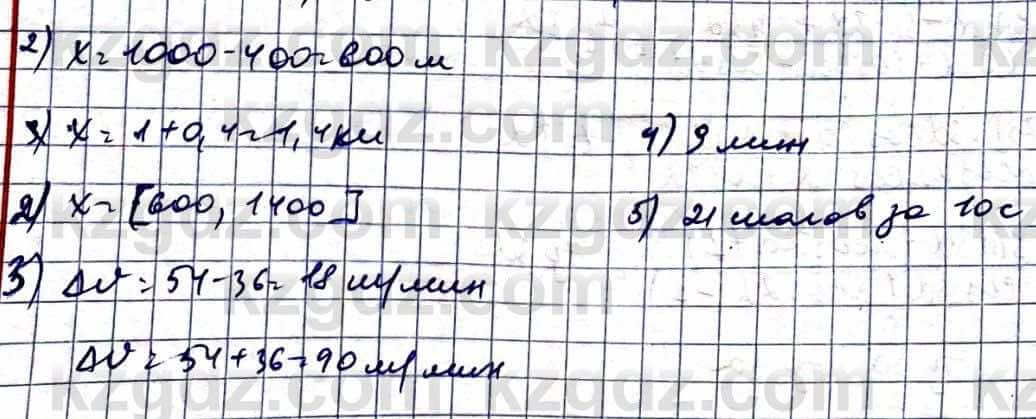 2) x = 1000 - 400 = 600 м
3) x = 1 + 0,4 = 1,4 км
4) 9 мин
2) x = [600, 1400]
5) 21 шагов за 10 с
3) Δv = 54 - 36 = 18 м/мин
Δv = 54 + 36 = 90 м/мин
kzgdz.com